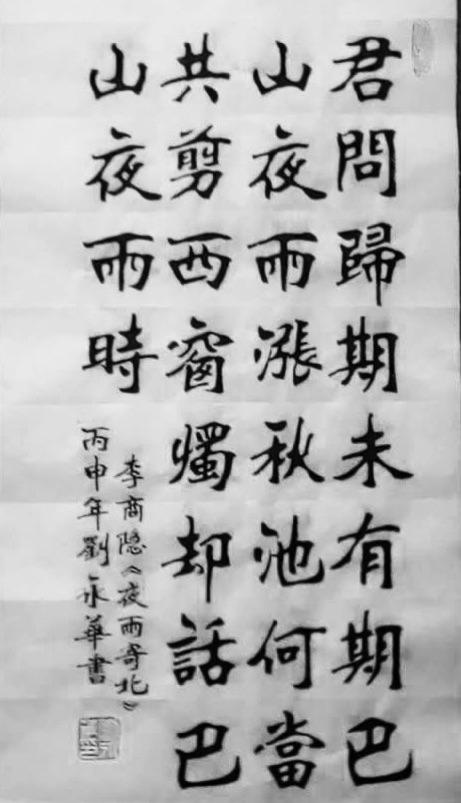 君問歸期未有期巴
山夜雨漲秋池何當
共剪西窗燭却話巴
山夜雨時
李商隐《夜雨寄北》
丙申年劉永華書